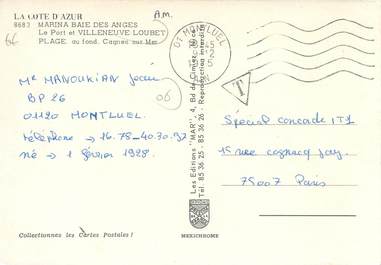 LA COTE D'AZUR
8683 MARINA BAIE DES ANGES
Le Port et VILLENEUVE LOUBET
PLAGE, au fond, Cagnes sur Mer
A.M.
06
Mr MANOUKIAN Jean
BP 26
01120 MONTLUEL
téléphone → 16.78-40.30.92
né → 1 février 1928
06
Collectionnez les Cartes Postales !
01 MONTLUEL
AIN
T
Les Editions "MAR", 4, Bd de Cimiez, Nice
Tél. 85 36 25 - 85 36 26 - Reproduction interdite
MEXICHROME
Special concorde IT1
15 rue cognacq Jay
75007 Paris